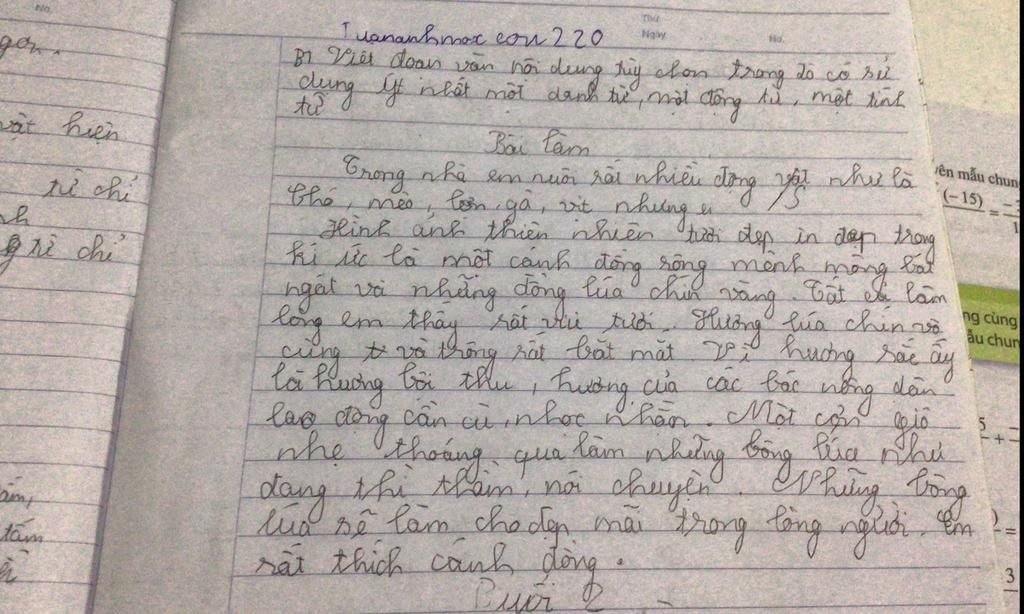 No.
Thứ
Ngày
No.
gơn.
vật hiện
từ chỉ
từ chỉ
tấm
Tuananhmox con 220
B1 Viết đoạn văn nội dung tùy chọn trong đó có sử
dụng ít nhất một danh từ, một động từ, một tính
từ
Bài làm
Trong nhà em nuôi rất nhiều động vật như là
thỏ, mèo, lợn, gà, vịt nhưng
Hình ảnh thiên nhiên tươi đẹp in đẹp trong
kí ức là một cánh đồng rộng mênh mông bát
ngát và những đồng lúa chín vàng. Tất cả làm
lòng em thấy rất vui tươi. Hương lúa chín vô
cùng và trông rất bắt mắt vì hương sắc ấy
là hương bội thu, hương của các bác nông dân
lao động cần cù, nhọc nhằn. Một cơn gió
nhẹ thoáng qua làm những bông lúa như
đang thì thầm, nói chuyện. Những bông
lúa sẽ làm cho đẹp mãi trong lòng người. Em
rất thích cánh đồng.
Buổi 2
yên mẫu chun
(-15)
=
ng cùng
ẫu chun
5
+
=
3